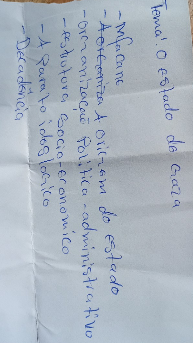 Tema: O estado da Gaza
- Mfacane
- A origem do estado
- Organização Política-administrativo
- estrutura socio-economico
- A parato ideologico
- Decadência